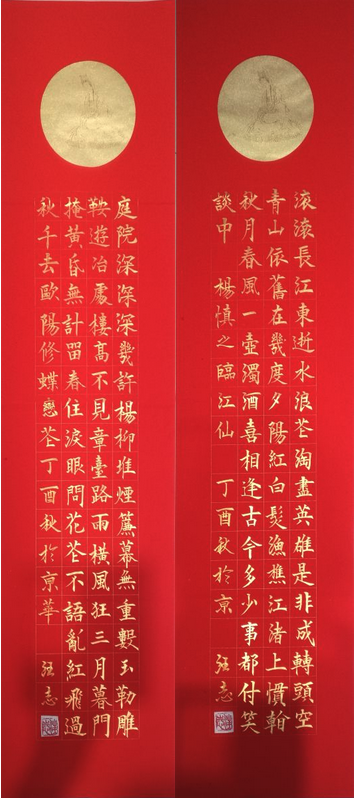 滚滚長江東逝水浪花淘盡英雄是非成轉頭空
青山依舊在幾度夕陽紅白髮漁樵江渚上慣看
秋月春風一壺濁酒喜相逢古今多少事都付笑
談中 楊慎之臨江仙 丁酉秋於京 志
庭院深深深幾許楊柳堆煙簾幕無重數玉勒雕
鞍遊冶處樓高不見章臺路雨橫風狂三月暮門
掩黃昏無計留春住淚眼問花花不語亂紅飛過
秋千去歐陽修蝶戀花丁酉秋於京華 志